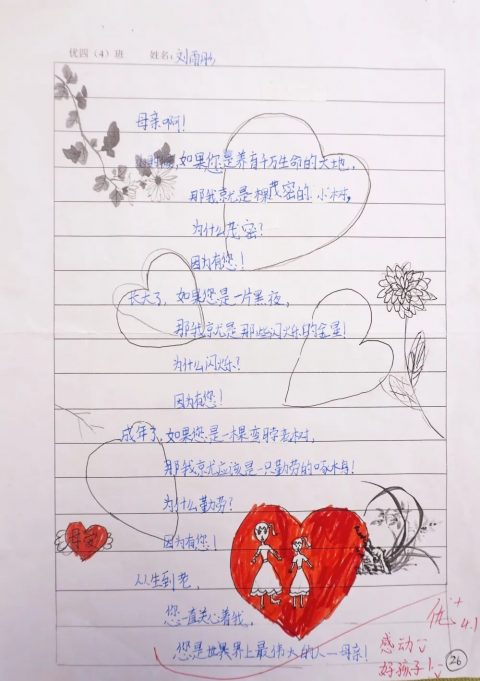 优四（4）班 姓名：刘雨彤
母亲啊！
如果你是养育千万生命的大地，
那我就是棵茂密的小树，
为什么茂密？
因为有您！
长大了，如果您是一片黑夜，
那我就是那些闪烁的金星！
为什么闪烁？
因为有您！
成年了，如果您是一棵弯脖老树，
那我就应该是一只勤劳的啄木鸟！
为什么勤劳？
因为有您！
从生到老，
您一直关心着我，
您是世界上最伟大的人—母亲！
母爱
优+
4.1
感动
好孩子！
26